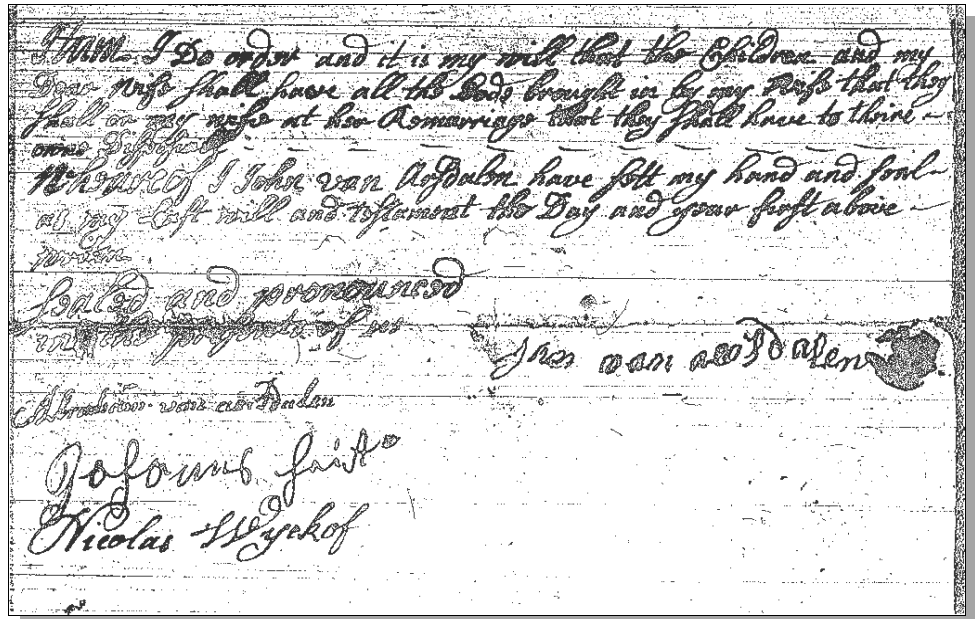 Item I Do order and it is my will that the Children and my
Dear Wife shall have all the beds brought in by my Wife that they
shall or my wife at her Remarriage that they shall have to theire
owne
Whereof I John van Arsdalen have sett my hand and seal
as my Last will and testament the Day and year first above

Sealed and pronounced
in the of us
Jan van aersdalen
Abraham van aersdalen
Johannes
Nicolas Wyckof